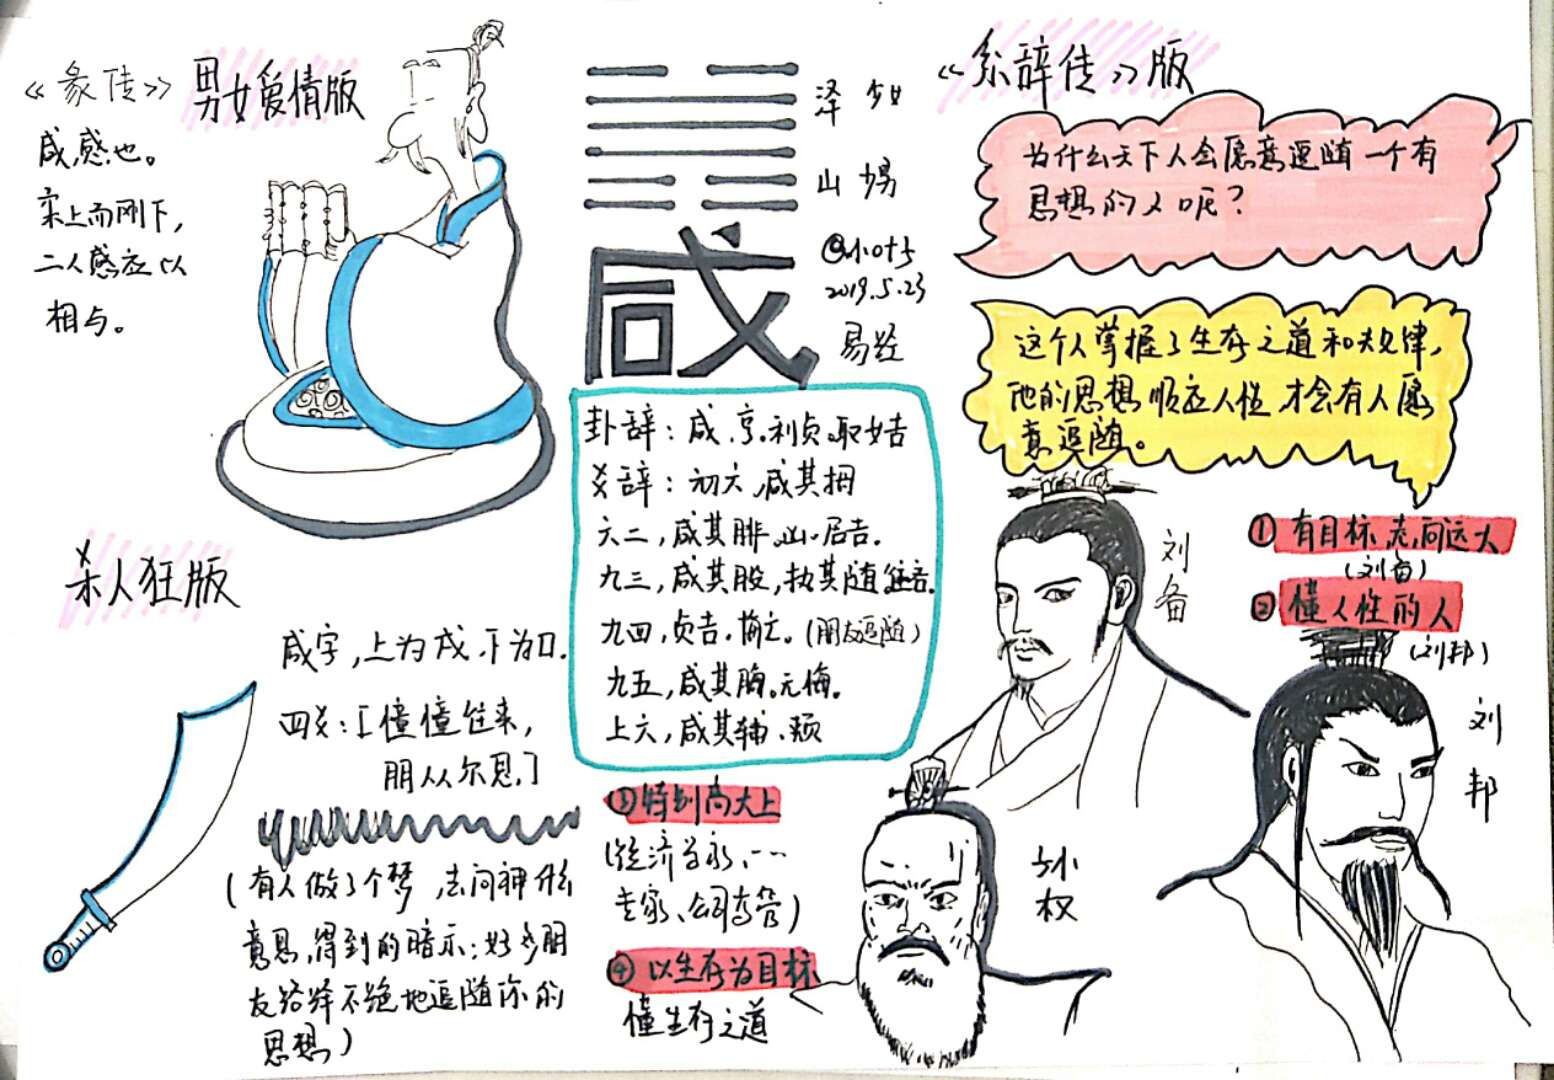 《彖传》男女爱情版
咸,感也。
柔上而刚下,
二人感应以
相与。
泽 少女
山 少男
咸
2019.5.23
易经
卦辞:咸,亨。利贞。取女吉
爻辞:初六,咸其拇
六二,咸其腓。凶。居吉.
九三,咸其股,执其随,往吝.
九四,贞吉.悔亡。(朋友追随)
九五,咸其脢。无悔。
上六,咸其辅、颊
《系辞传》版
为什么天下人会愿意追随一个有
思想的人呢?
这个人掌握了生存之道和规律,
他的思想顺应人性,才会有人愿
意追随。
刘备
①有目标,志向远大
(刘备)
②懂人性的人
(刘邦)
刘邦
杀人狂版
咸字,上为戌,下为口.
四爻:[憧憧往来,
朋从尔思.]
(有人做了个梦,去问神什么
意思,得到的暗示:好多朋
友络绎不绝地追随你的
思想)
③特别高大上
专家、公司高管)
④以生存为目标
懂生存之道
孙权